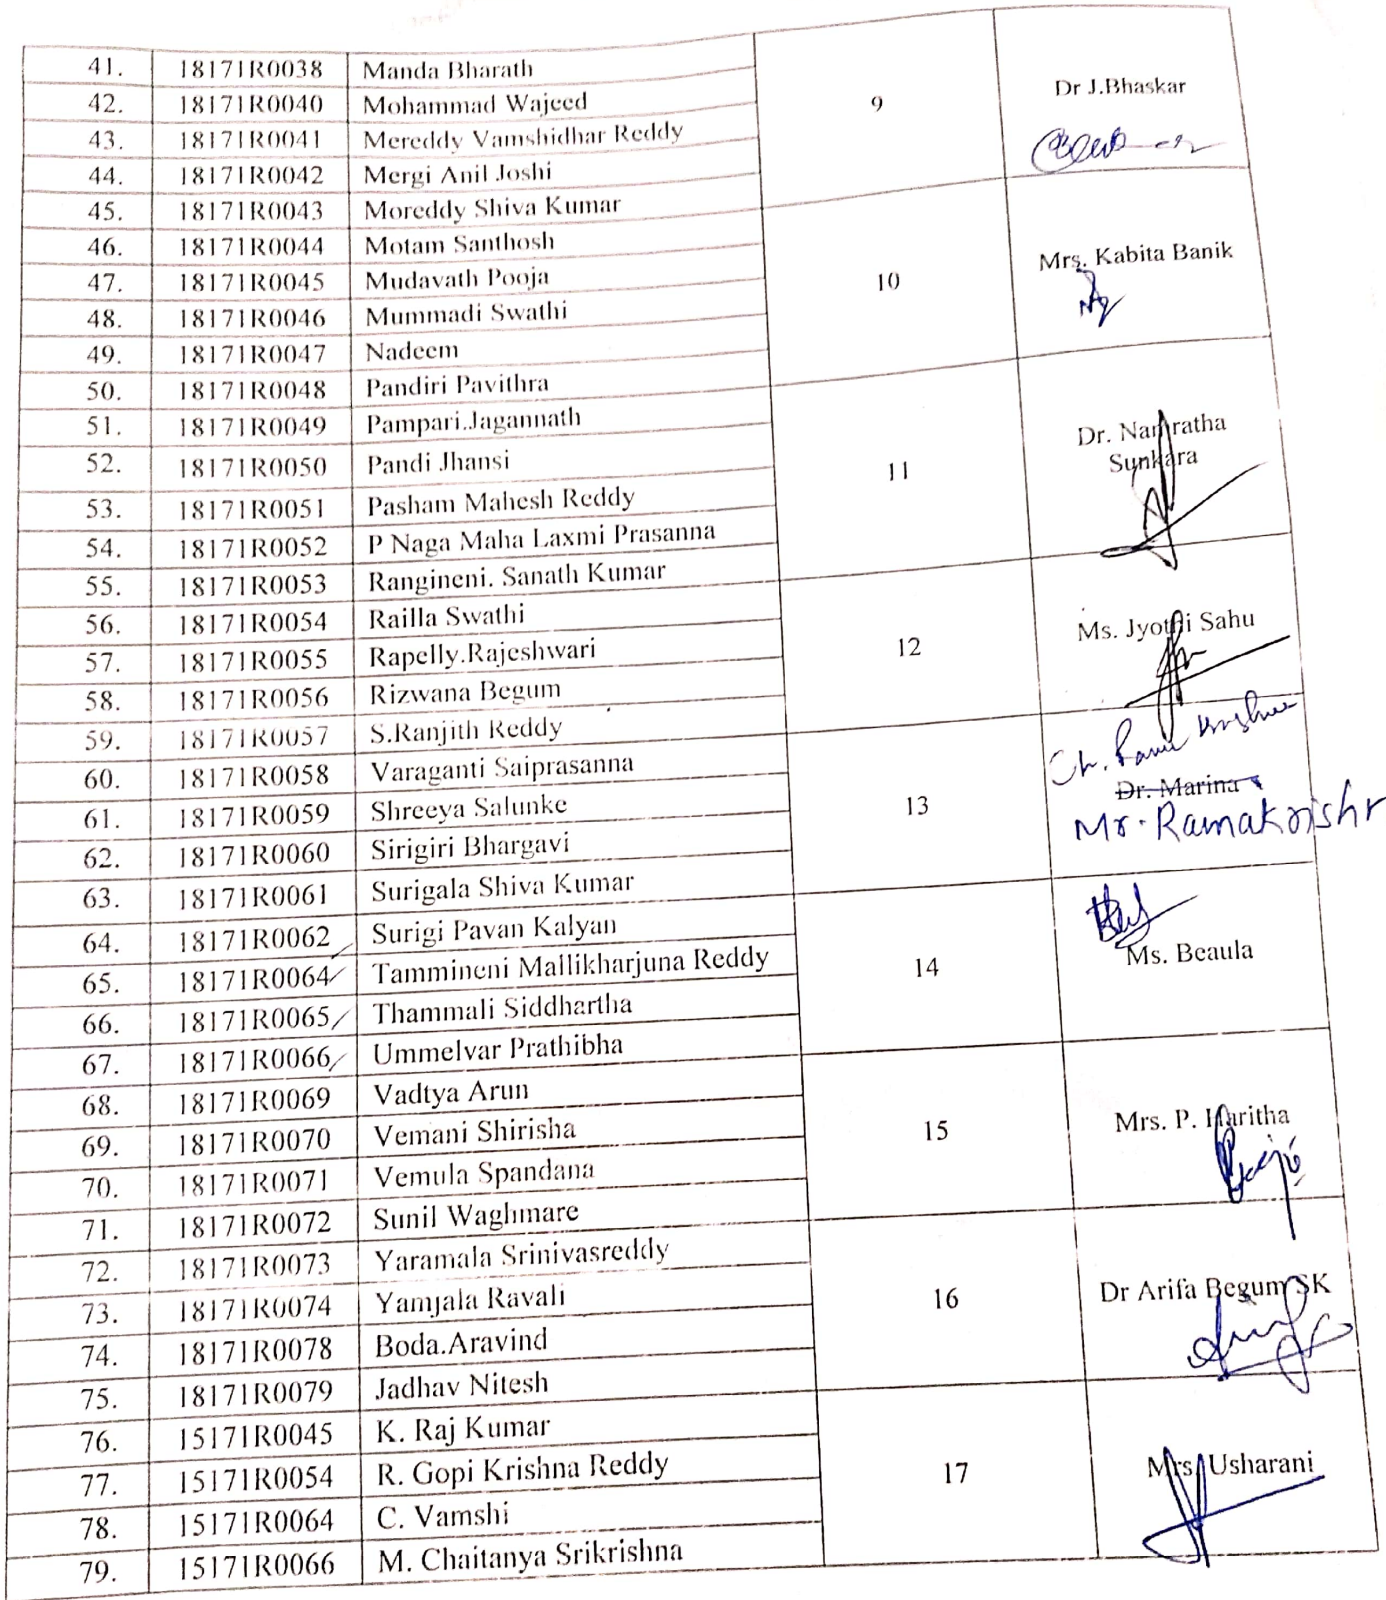 41. 18171R0038 Manda Bharath
42. 18171R0040 Mohammad Wajeed
43. 18171R0041 Mereddy Vamshidhar Reddy
44. 18171R0042 Mergi Anil Joshi
45. 18171R0043 Moreddy Shiva Kumar
9 Dr J.Bhaskar
46. 18171R0044 Motam Santhosh
47. 18171R0045 Mudavath Pooja
48. 18171R0046 Mummadi Swathi
49. 18171R0047 Nadeem
50. 18171R0048 Pandiri Pavithra
10 Mrs. Kabita Banik
51. 18171R0049 Pampari.Jagannath
52. 18171R0050 Pandi Jhansi
53. 18171R0051 Pasham Mahesh Reddy
54. 18171R0052 P Naga Maha Laxmi Prasanna
55. 18171R0053 Rangineni. Sanath Kumar
11 Dr. Namratha
Sunkara
56. 18171R0054 Railla Swathi
57. 18171R0055 Rapelly.Rajeshwari
58. 18171R0056 Rizwana Begum
59. 18171R0057 S.Ranjith Reddy
12 Ms. Jyothi Sahu
60. 18171R0058 Varaganti Saiprasanna
61. 18171R0059 Shreeya Salunke
62. 18171R0060 Sirigiri Bhargavi
63. 18171R0061 Surigala Shiva Kumar
13 Dr. Marina
Mr. Ramakrishn
64. 18171R0062 Surigi Pavan Kalyan
65. 18171R0064 Tammineni Mallikharjuna Reddy
66. 18171R0065 Thammali Siddhartha
67. 18171R0066 Ummelvar Prathibha
14 Ms. Beaula
68. 18171R0069 Vadtya Arun
69. 18171R0070 Vemani Shirisha
70. 18171R0071 Vemula Spandana
71. 18171R0072 Sunil Waghmare
15 Mrs. P. Haritha
72. 18171R0073 Yaramala Srinivasreddy
73. 18171R0074 Yamjala Ravali
74. 18171R0078 Boda.Aravind
75. 18171R0079 Jadhav Nitesh
16 Dr Arifa Begum SK
76. 15171R0045 K. Raj Kumar
77. 15171R0054 R. Gopi Krishna Reddy
78. 15171R0064 C. Vamshi
79. 15171R0066 M. Chaitanya Srikrishna
17 Mrs Usharani